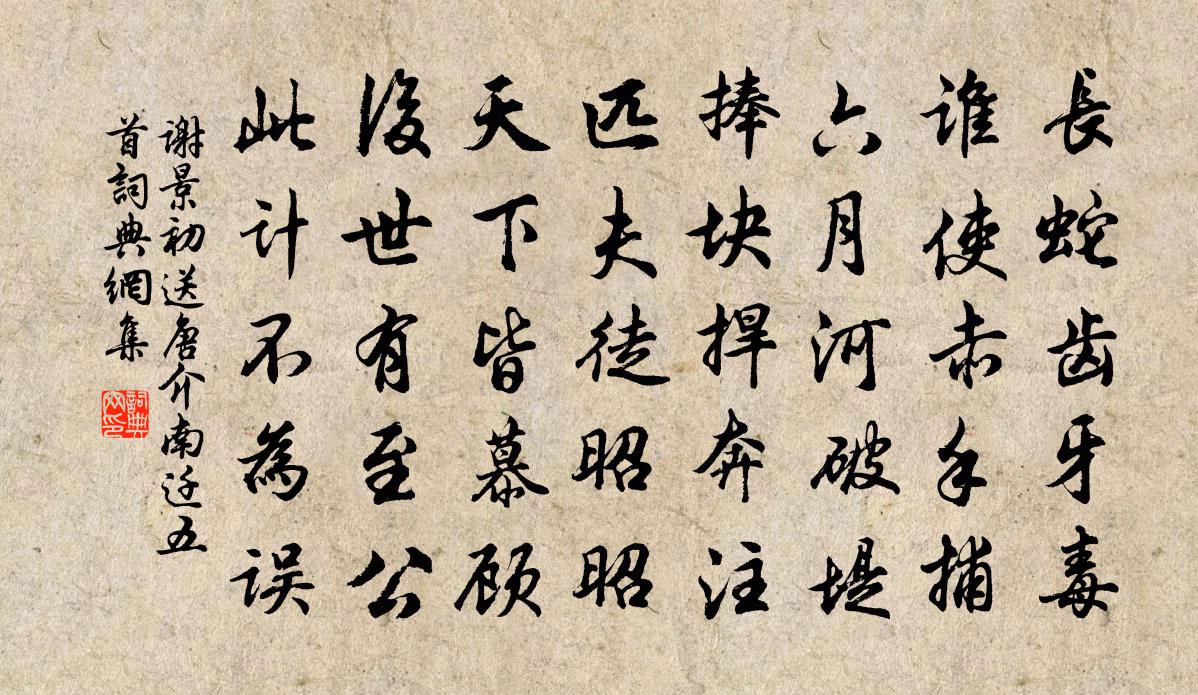 長蛇齿牙毒
谁使赤手捕
六月河破堤
捧块捍奔注
匹夫徒昭昭
天下皆慕顾
後世有至公
此计不為误
谢景初送唐介南迁五
首詞典網集
詞典
网印